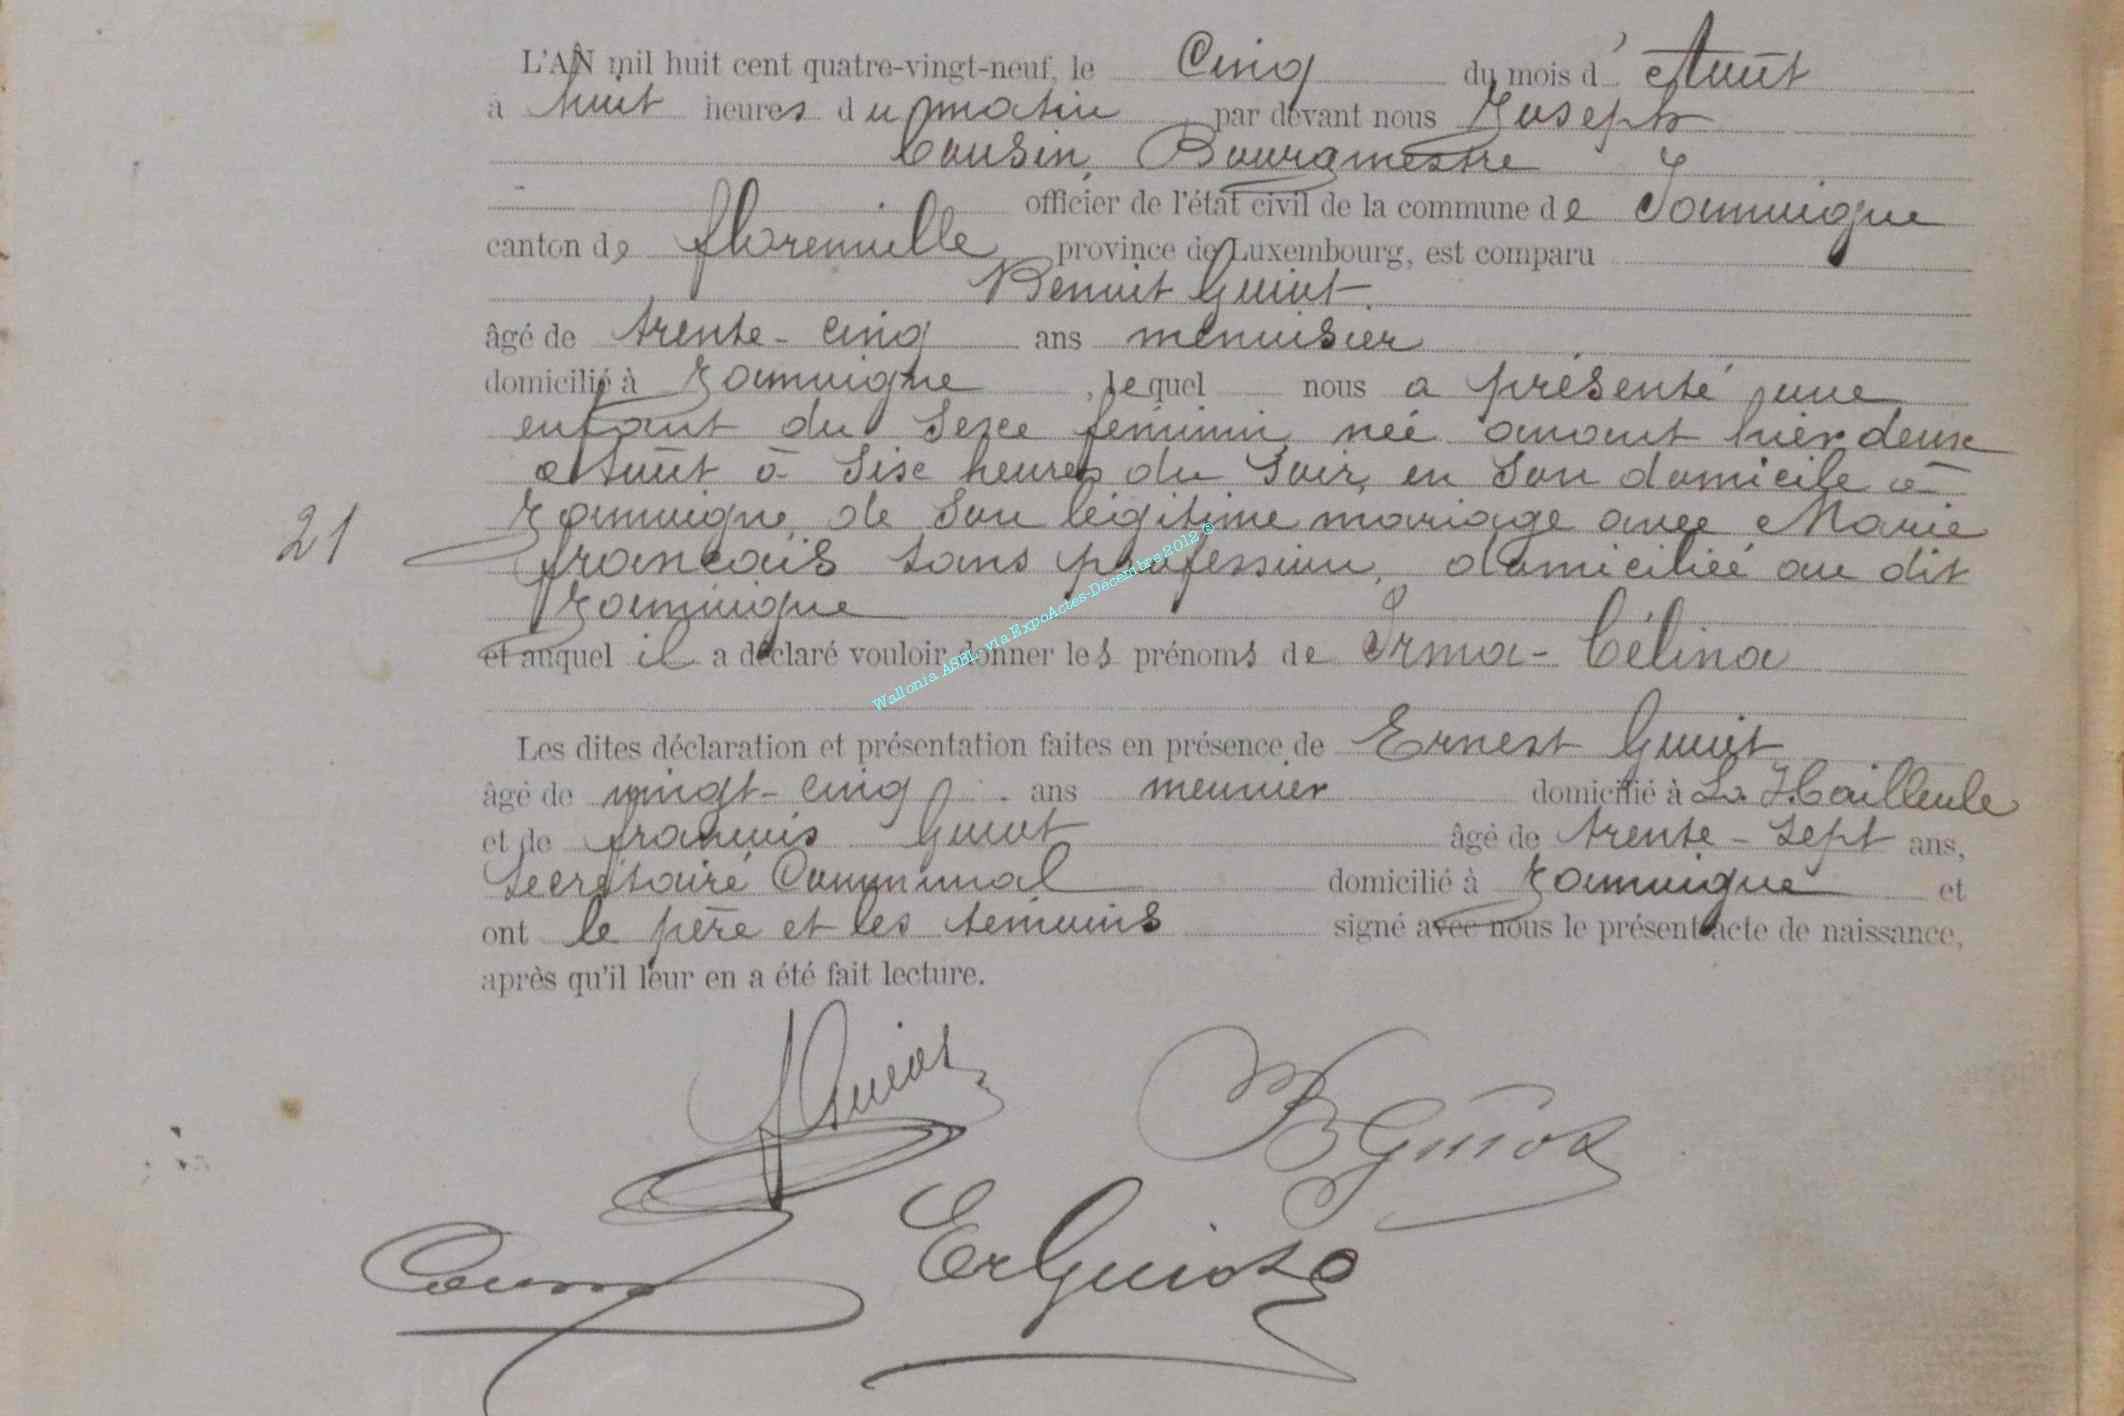 L'AN mil huit cent quatre-vingt-neuf, le Cinq du mois d' Août
à huit heures du matin par devant nous Joseph
Cousin, Bourgmestre
officier de l'état civil de la commune de Jamoigne
canton de florenville province de Luxembourg, est comparu
Benoit Guiot
âgé de trente-cinq ans menuisier
domicilié à Jamoigne, lequel nous a présenté une
enfant du sexe féminin née avant hier deux
Août à six heures du soir, en son domicile à
Jamoigne, de son légitime mariage avec Marie
françois sans profession, domiciliée au dit
Jamoigne
et auquel il a déclaré vouloir donner les prénoms de Irma-Célina
Les dites déclaration et présentation faites en présence de Ernest Guiot
âgé de vingt-cinq ans meunier domicilié à La Hailleule
et de françois Guiot âgé de trente-sept ans,
secrétaire Communal domicilié à Jamoigne et
ont le père et les témoins signé avec nous le présent acte de naissance,
après qu'il leur en a été fait lecture.
21
Wallonia ASBL via ExpoActes-Décembre 2012 ©
f Guiot
B Guiot
Cousin
Er Guiot